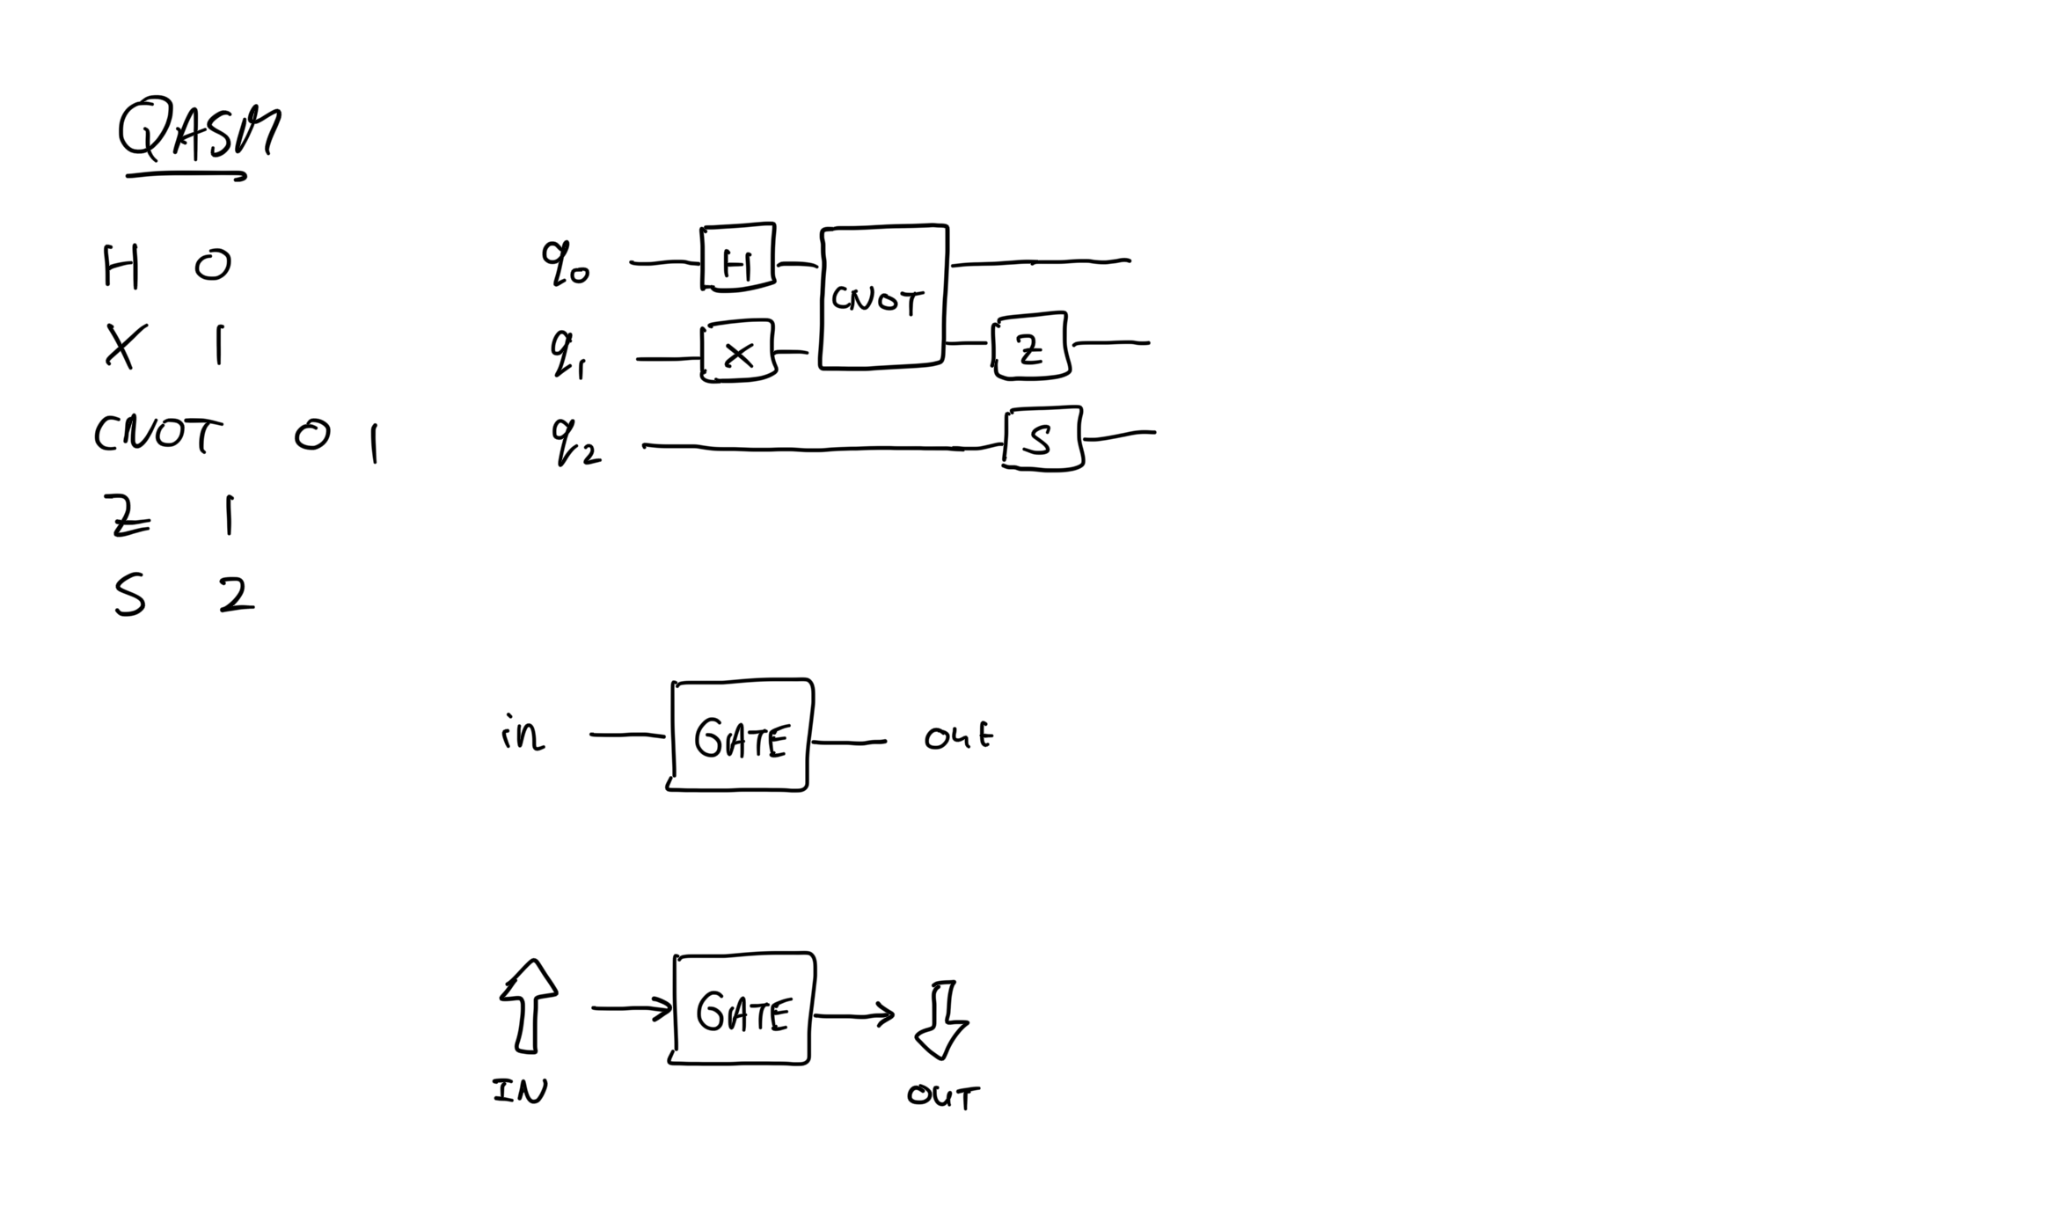 QASM
H 0
X 1
CNOT 0 1
Z 1
S 2
q0 H
CNOT
q1 X Z
q2 S
in GATE out
GATE
IN OUT